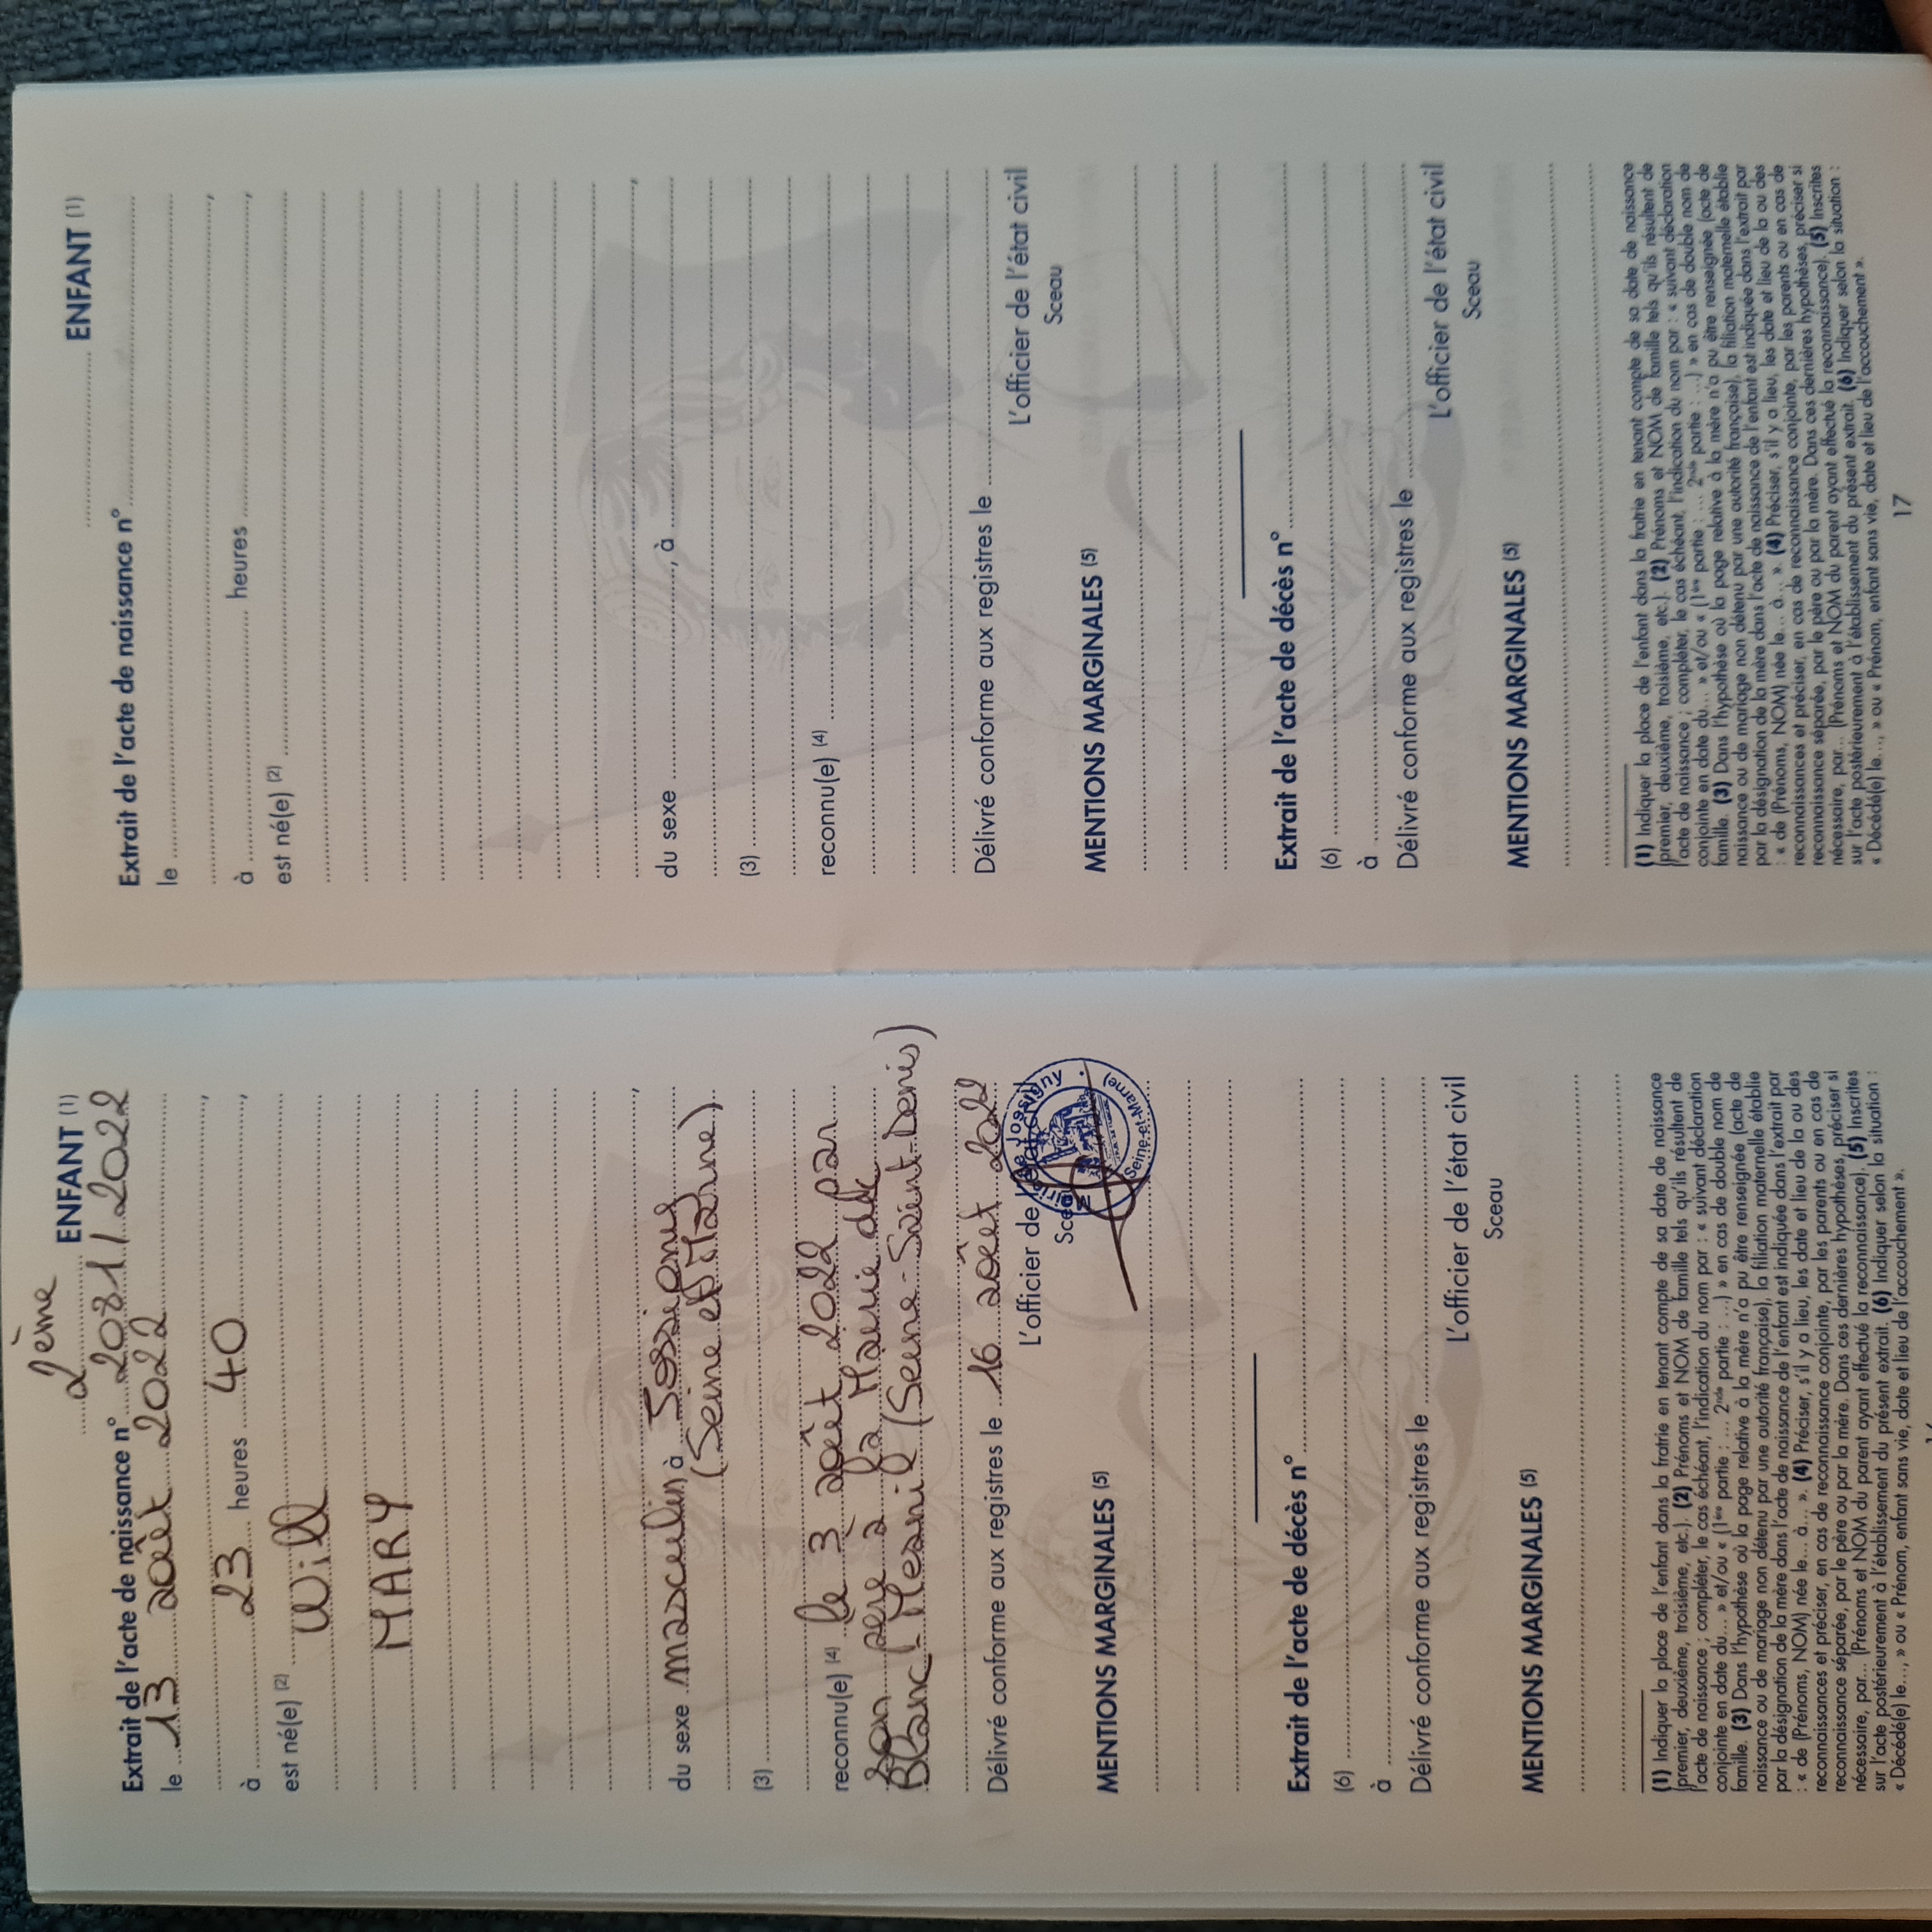 2ème ENFANT (1)
Extrait de l'acte de naissance n° 2081/2022
le 13 août 2022
,
à 23 heures 40 ,
est né(e) (2) Will
MARY
,
du sexe masculin à Jossigny
(Seine et Marne)
(3)
reconnu(e) (4) le 3 août 2022 par
son père à la Mairie de
Blanc-Mesnil (Seine-Saint-Denis)
Délivré conforme aux registres le 16 août 2022
L'officier de l'état civil
Sceau
Mairie de Jossigny
(Seine-et-Marne)
MENTIONS MARGINALES (5)
Extrait de l'acte de décès n°
(6)
à
Délivré conforme aux registres le
L'officier de l'état civil
Sceau
MENTIONS MARGINALES (5)
(1) Indiquer la place de l'enfant dans la fratrie en tenant compte de sa date de naissance
(premier, deuxième, troisième, etc.). (2) Prénoms et NOM de famille tels qu'ils résultent de
l'acte de naissance ; compléter, le cas échéant, l'indication du nom par : « suivant déclaration
conjointe en date du... » et/ou « (1ère partie : ... 2nde partie : ...) » en cas de double nom de
famille. (3) Dans l'hypothèse où la page relative à la mère n'a pu être renseignée (acte de
naissance ou de mariage non détenu par une autorité française), la filiation maternelle établie
par la désignation de la mère dans l'acte de naissance de l'enfant est indiquée dans l'extrait par
: « de (Prénoms, NOM) née le... à... ». (4) Préciser, s'il y a lieu, les date et lieu de la ou des
reconnaissances et préciser, en cas de reconnaissance conjointe, par les parents ou en cas de
reconnaissance séparée, par le père ou par la mère. Dans ces dernières hypothèses, préciser si
nécessaire, par... (Prénoms et NOM du parent ayant effectué la reconnaissance). (5) Inscrites
sur l'acte postérieurement à l'établissement du présent extrait. (6) Indiquer selon la situation :
« Décédé(e) le..., » ou « Prénom, enfant sans vie, date et lieu de l'accouchement ».
ENFANT (1)
Extrait de l'acte de naissance n°
le
,
à heures ,
est né(e) (2)
,
du sexe , à
(3)
reconnu(e) (4)
Délivré conforme aux registres le
L'officier de l'état civil
Sceau
MENTIONS MARGINALES (5)
Extrait de l'acte de décès n°
(6)
à
Délivré conforme aux registres le
L'officier de l'état civil
Sceau
MENTIONS MARGINALES (5)
(1) Indiquer la place de l'enfant dans la fratrie en tenant compte de sa date de naissance
(premier, deuxième, troisième, etc.). (2) Prénoms et NOM de famille tels qu'ils résultent de
l'acte de naissance ; compléter, le cas échéant, l'indication du nom par : « suivant déclaration
conjointe en date du... » et/ou « (1ère partie : ... 2nde partie : ...) » en cas de double nom de
famille. (3) Dans l'hypothèse où la page relative à la mère n'a pu être renseignée (acte de
naissance ou de mariage non détenu par une autorité française), la filiation maternelle établie
par la désignation de la mère dans l'acte de naissance de l'enfant est indiquée dans l'extrait par
: « de (Prénoms, NOM) née le... à... ». (4) Préciser, s'il y a lieu, les date et lieu de la ou des
reconnaissances et préciser, en cas de reconnaissance conjointe, par les parents ou en cas de
reconnaissance séparée, par le père ou par la mère. Dans ces dernières hypothèses, préciser si
nécessaire, par... (Prénoms et NOM du parent ayant effectué la reconnaissance). (5) Inscrites
sur l'acte postérieurement à l'établissement du présent extrait. (6) Indiquer selon la situation :
« Décédé(e) le..., » ou « Prénom, enfant sans vie, date et lieu de l'accouchement ».
17